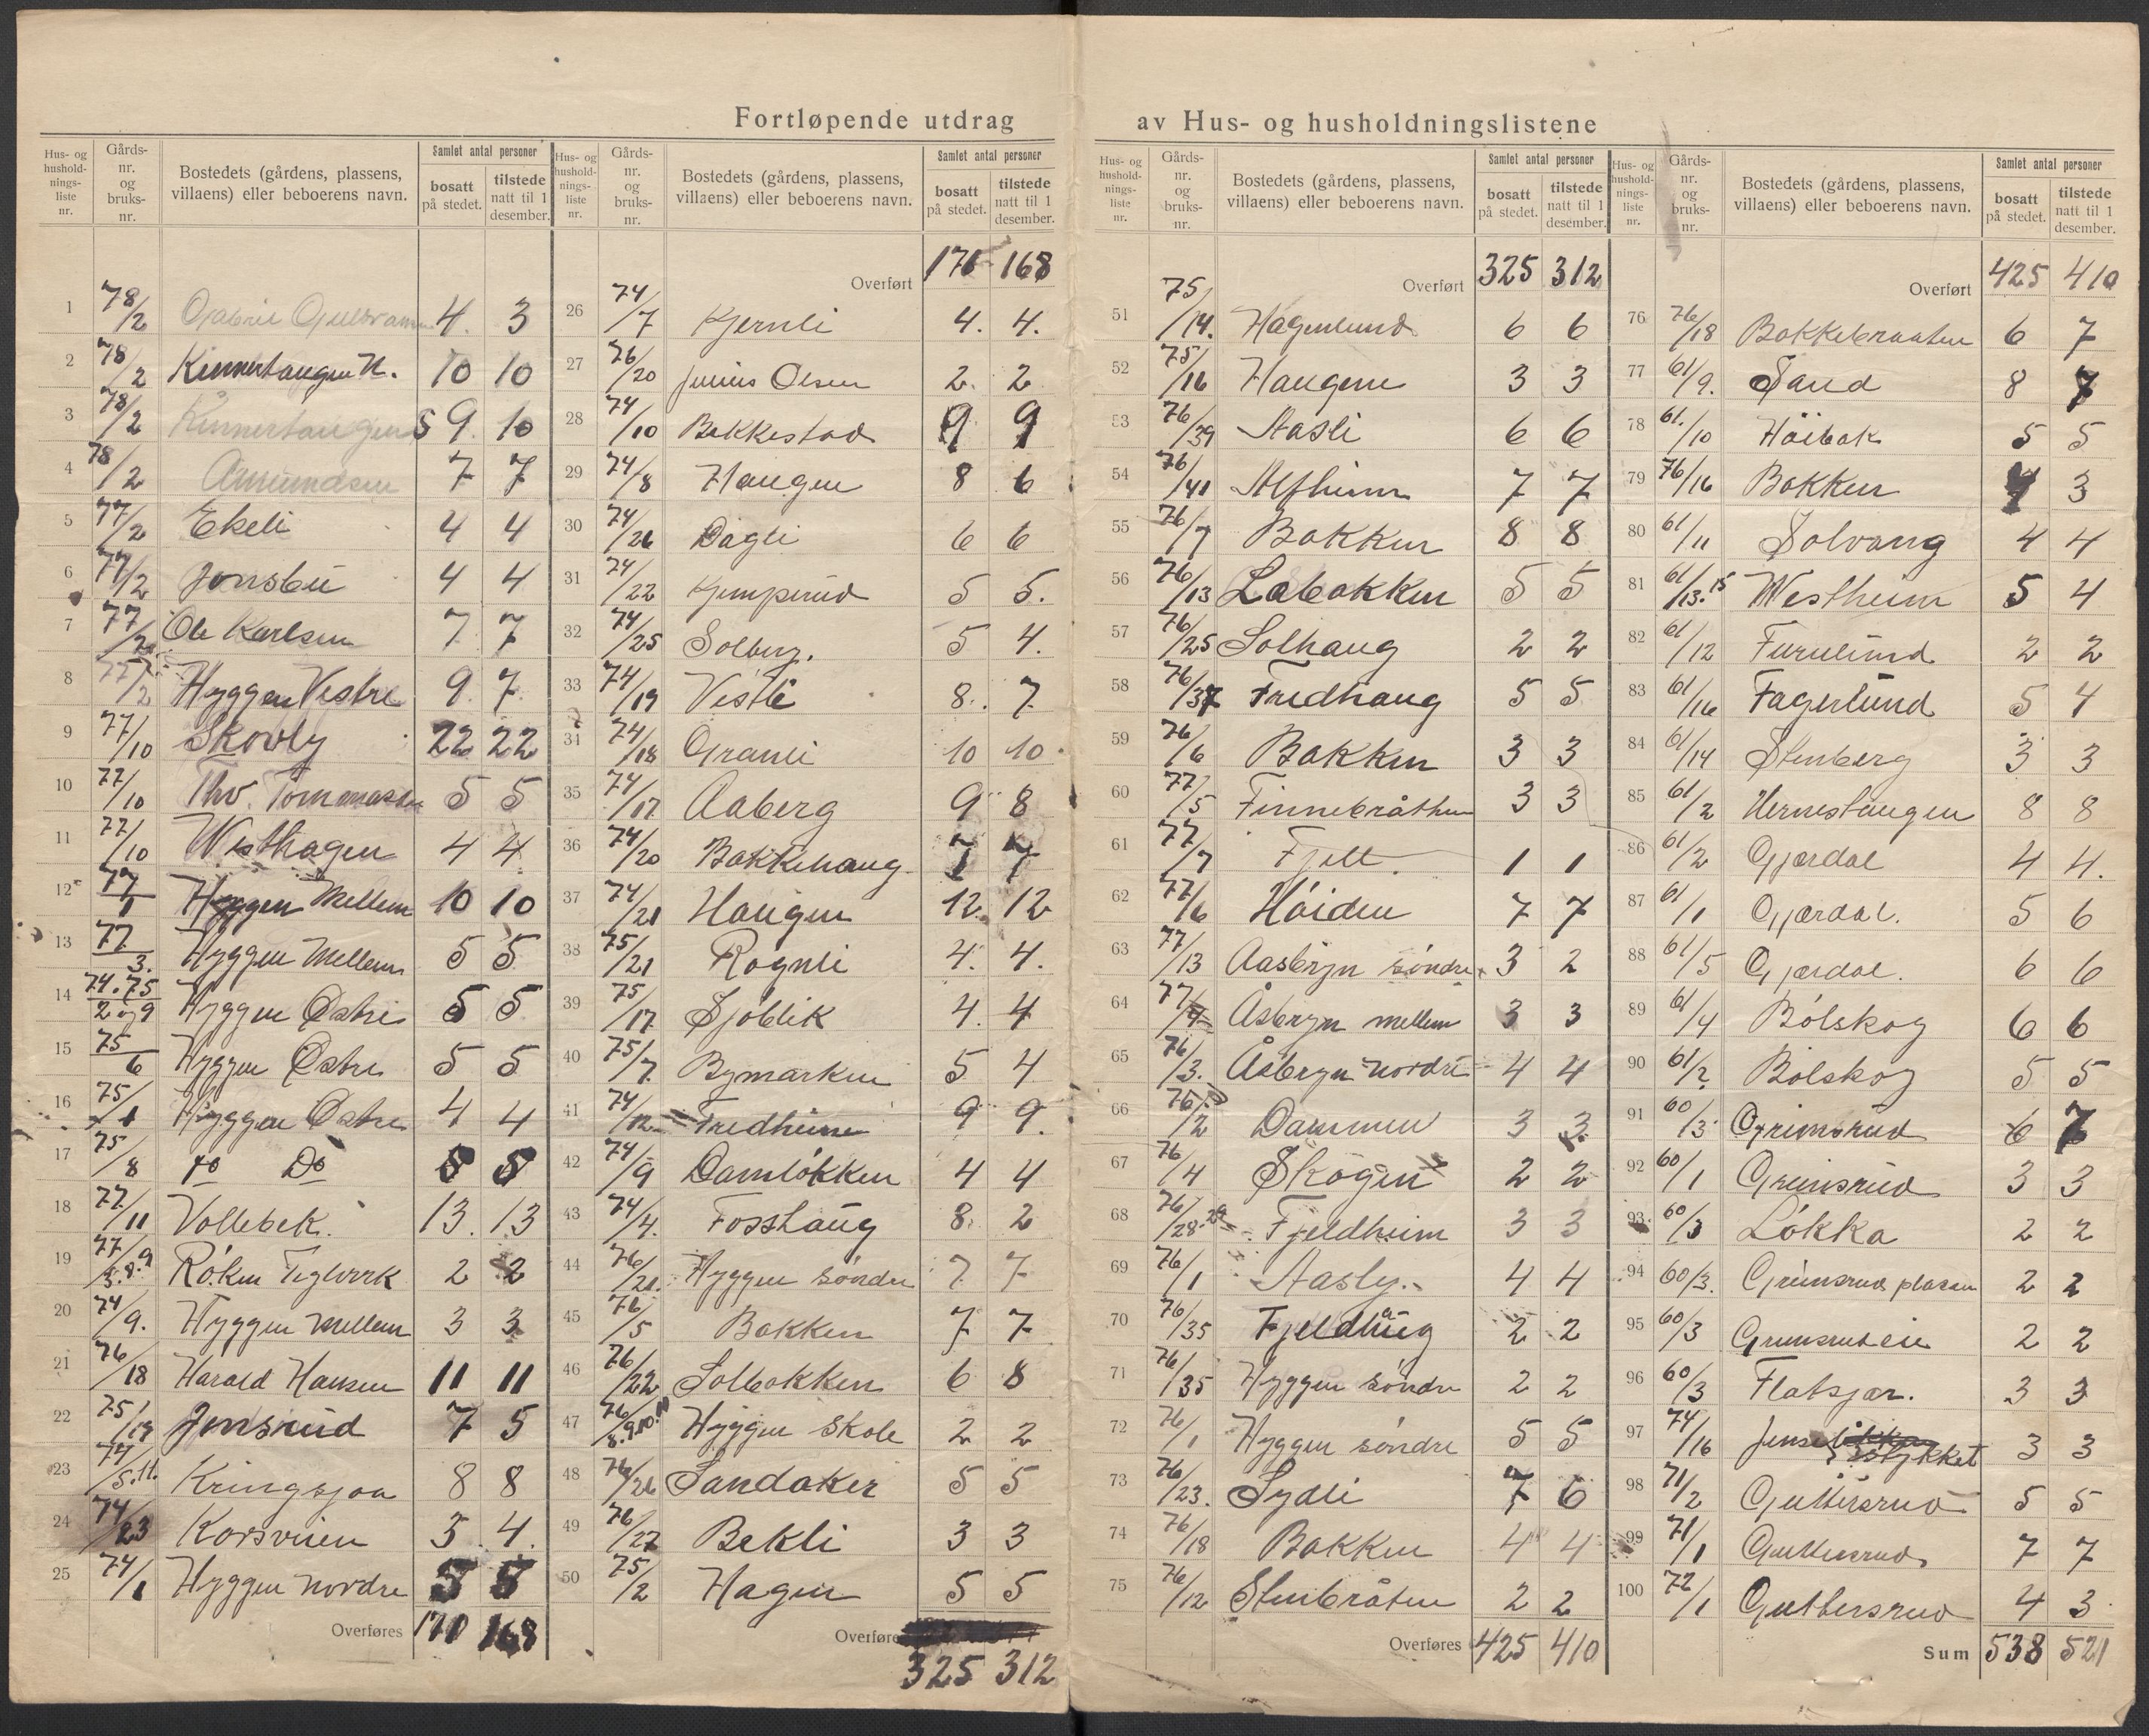 Fortløpende utdrag av Hus- og husholdningslistene
Hus- og hushold-nings-liste nr. Gårds-nr. og bruks-nr. Bostedets (gårdens, plassens, villaens) eller beboerens navn. Samlet antal personer bosatt på stedet. tilstede natt til 1 desember.
1 78/2 4. 3
2 78/2 Kinnertangen N. 10 10
3 78/2 Kinnertangen S 9. 10
4 78/2 Amundsen 7 7
5 77/2 Ekeli 4 4
6 77/2 Jonsbu 4 4
7 77/2 Ole Karlsen 7 7
8 77/2 Hyggen Vestre 9 7.
9 77/10 Skovly 22 22
10 77/10 Thv. 5 5
11 77/10 Westhagen 4 4
12 77/1 Hyggen Mellem 10 10
13 77/3. Hyggen Mellem 5 5
14 74.75 2 og 9 Hyggen Østre 5 5
15 75/6 Hyggen Østre 5 5
16 75/1 Hyggen Østre 4 4
17 75/8 Do Do 5 5
18 77/11 Vollebek. 13. 13
19 77/ Röken Teglverk 2 2
20 74/9. Hyggen mellem 3 3
21 76/18 Harald Hansen 11 11
22 75/19 Jonsrud 7 5
23 74/5.11. Kringsjaa 8 8
24 74/23 Korsveien 3 4.
25 74/1 Hyggen nordre 5 5
Overføres 170 168
Hus- og hushold-nings-liste nr. Gårds-nr. og bruks-nr. Bostedets (gårdens, plassens, villaens) eller beboerens navn. Samlet antal personer bosatt på stedet. tilstede natt til 1 desember.
Overført 171 168
26 74/7 Kjernli 4. 4.
27 76/20 Julius Olsen 2. 2
28 74/10 Bakkestad 9 9
29 74/8 Haugen 8 6
30 74/26 Dagli 6 6
31 74/22 Kjemperud 5 5.
32 74/25 Solberg. 5 4.
33 74/19 Vestli 8. 7
34 74/18 Granli 10 10
35 74/17 Aaberg 9 8
36 74/20 Bakkehaug 7 7
37 74/21 Haugen 12 12
38 75/21 Rognli 4. 4.
39 75/17 Sjöblik 4. 4
40 75/7. Bymarken 5 4
41 74/12 Fredheim 9 9.
42 74/9 Damlökken 4 4
43 74/4. Fosshaug 8. 2
44 76/21. Hyggen söndre 7 7
45 76/5 Bakken 7 7
46 76/22 Solbakken 6 8
47 76/8.9.10. Hyggen Skole 2 2
48 76/26 Sandaker 5 5
49 76/27 Bekli 3 3
50 75/2 Hagen 5 5
Overføres
325 312
Hus- og hushold-nings-liste nr. Gårds-nr. og bruks-nr. Bostedets (gårdens, plassens, villaens) eller beboerens navn. Samlet antal personer bosatt på stedet. tilstede natt til 1 desember.
Overført 325 312
51 75/14. Hagenlund 6 6
52 75/16 Haugen 3 3
53 76/39 Aasli 6 6
54 76/41 Alfheim 7 7
55 76/7 Bakken 8 8
56 76/13 Labakken 5 5
57 76/25 Solhaug 2 2
58 76/37 Fredhaug 5 5
59 76/6 Bakken 3 3
60 77/5 Finnebråthen 3 3
61 77/7 Fjell 1 1
62 77/6 Höiden 7 7
63 77/13 Aasbryn söndre 3 2
64 77/ Åsbryn mellem 3 3
65 76/3. Åsbryn nordre 4 4
66 76/2 Dammen 3 3
67 76/4 Skogen 2 2
68 76/28.29 Fjeldheim 3 3
69 76/1 Aasly. 4 4
70 76/35 Fjeldhaug 2 2
71 76/35 Hyggen söndre 2 2
72 76/1 Hyggen söndre 5 5
73 76/23. Sydli 7 6
74 76/18 Bakken 4 4
75 76/12 Stenbråten 2 2
Overføres 425 410
Hus- og hushold-nings-liste nr. Gårds-nr. og bruks-nr. Bostedets (gårdens, plassens, villaens) eller beboerens navn. Samlet antal personer bosatt på stedet. tilstede natt til 1 desember.
Overført 425 410
76 76/18 Bakkebraaten 6 7
77 61/9. Sand 8 7
78 61./10 Höibak 5 5
79 76/16 Bakken 4 3
80 61/11 Solvang 4 4
81 61/13.15 Westheim 5 4
82 61/12 Furulund 2 2
83 61/16 Fagerlund 5 4
84 61/14 Stenberg 3 3
85 61/2 Hernestangen 8 8
86 61/2 Gjærdal 4 4.
87 61/1 Gjærdal. 5 6
88 61/5 Gjærdal. 6 6
89 61/4 Bölskog 6 6
90 61/2 Bölskog 5 5
91 60/3 Grimsrud 6 7
92 60/1 Grimsrud 3 3
93 60/3 Lökka 2 2
94 60/3. Grimsrud plassen 2 2
95 60/3 Grimsrudeie 2 2
96 60/3 Flatsjær. 3 3
97 74/16 stykket 3 3
98 71/2 Guttersrud 5 5
99 71/1 Guttersrud 7 7
100 72/1 Guttersrud 4 3
Sum 538 521